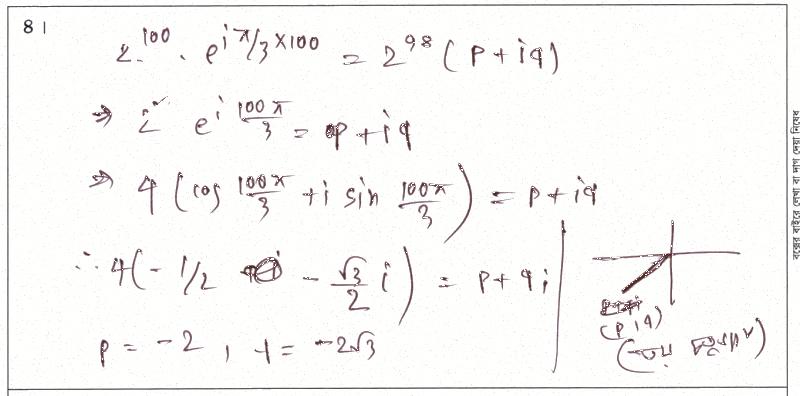 8|
2^100 . e^(i π/3 × 100) = 2^98 (p + iq)
⇒ 2^2 e^(i 100π/3) = p + iq
⇒ 4 (cos 100π/3 + i sin 100π/3) = p + iq
∴ 4(- 1/2 - √3/2 i) = p + qi
p = -2, q = -2√3
(p, q)
(৩য় চতুর্ভাগ)
বক্সের বাইরে লেখা বা দাগ দেয়া নিষেধ